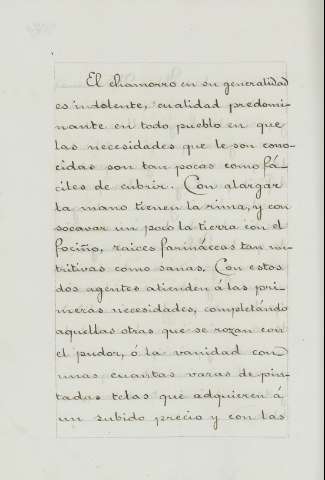 El chamorro en su generalidad
es indolente, cualidad predomi-
nante en todo pueblo en que
las necesidades que le son cono-
cidas son tan pocas como fá-
ciles de cubrir. Con alargar
la mano tienen la rima, y con
socavar un poco la tierra con el
fociño, raices farináceas tan nu-
tritivas como sanas. Con estos
dos agentes atienden á las pri-
meras necesidades, completando
aquellas otras que se rozan con
el pudor, ó la vanidad con
unas cuantas varas de pin-
tadas telas que adquieren á
un subido precio y con las